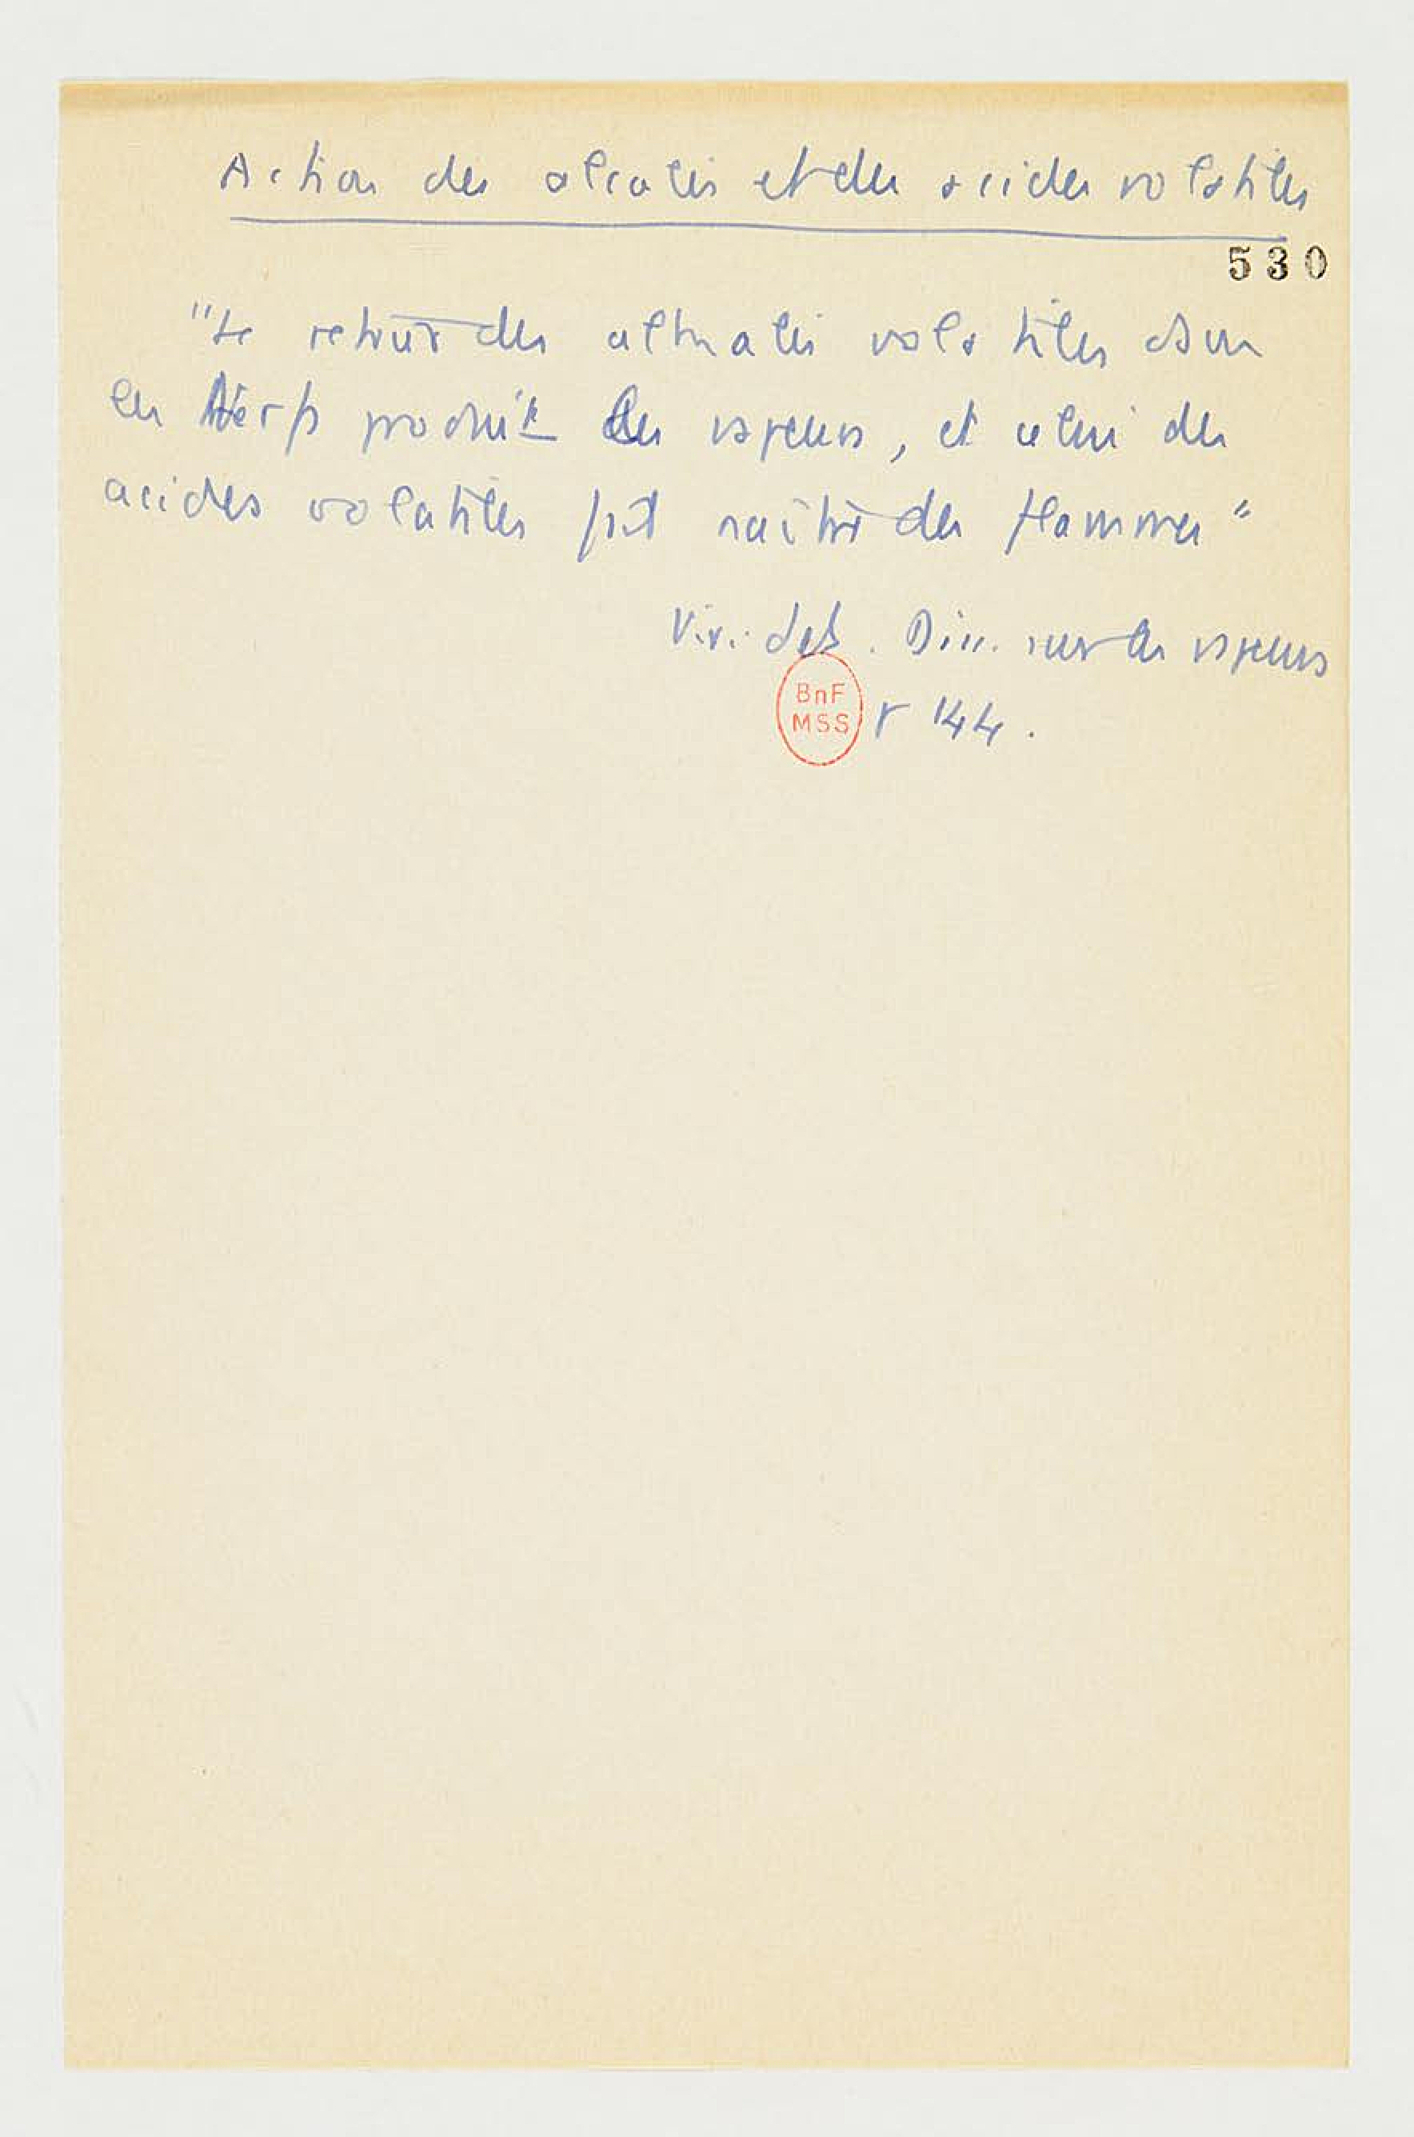 Action des alcalis et des acides volatiles
530
"Le retour des alkalis volatiles dans
les Nerfs produit les vapeurs, et celui des
acides volatiles fait naître des flammes"
Viridet. Diss. sur les vapeurs
BnF
MSS
p 144.